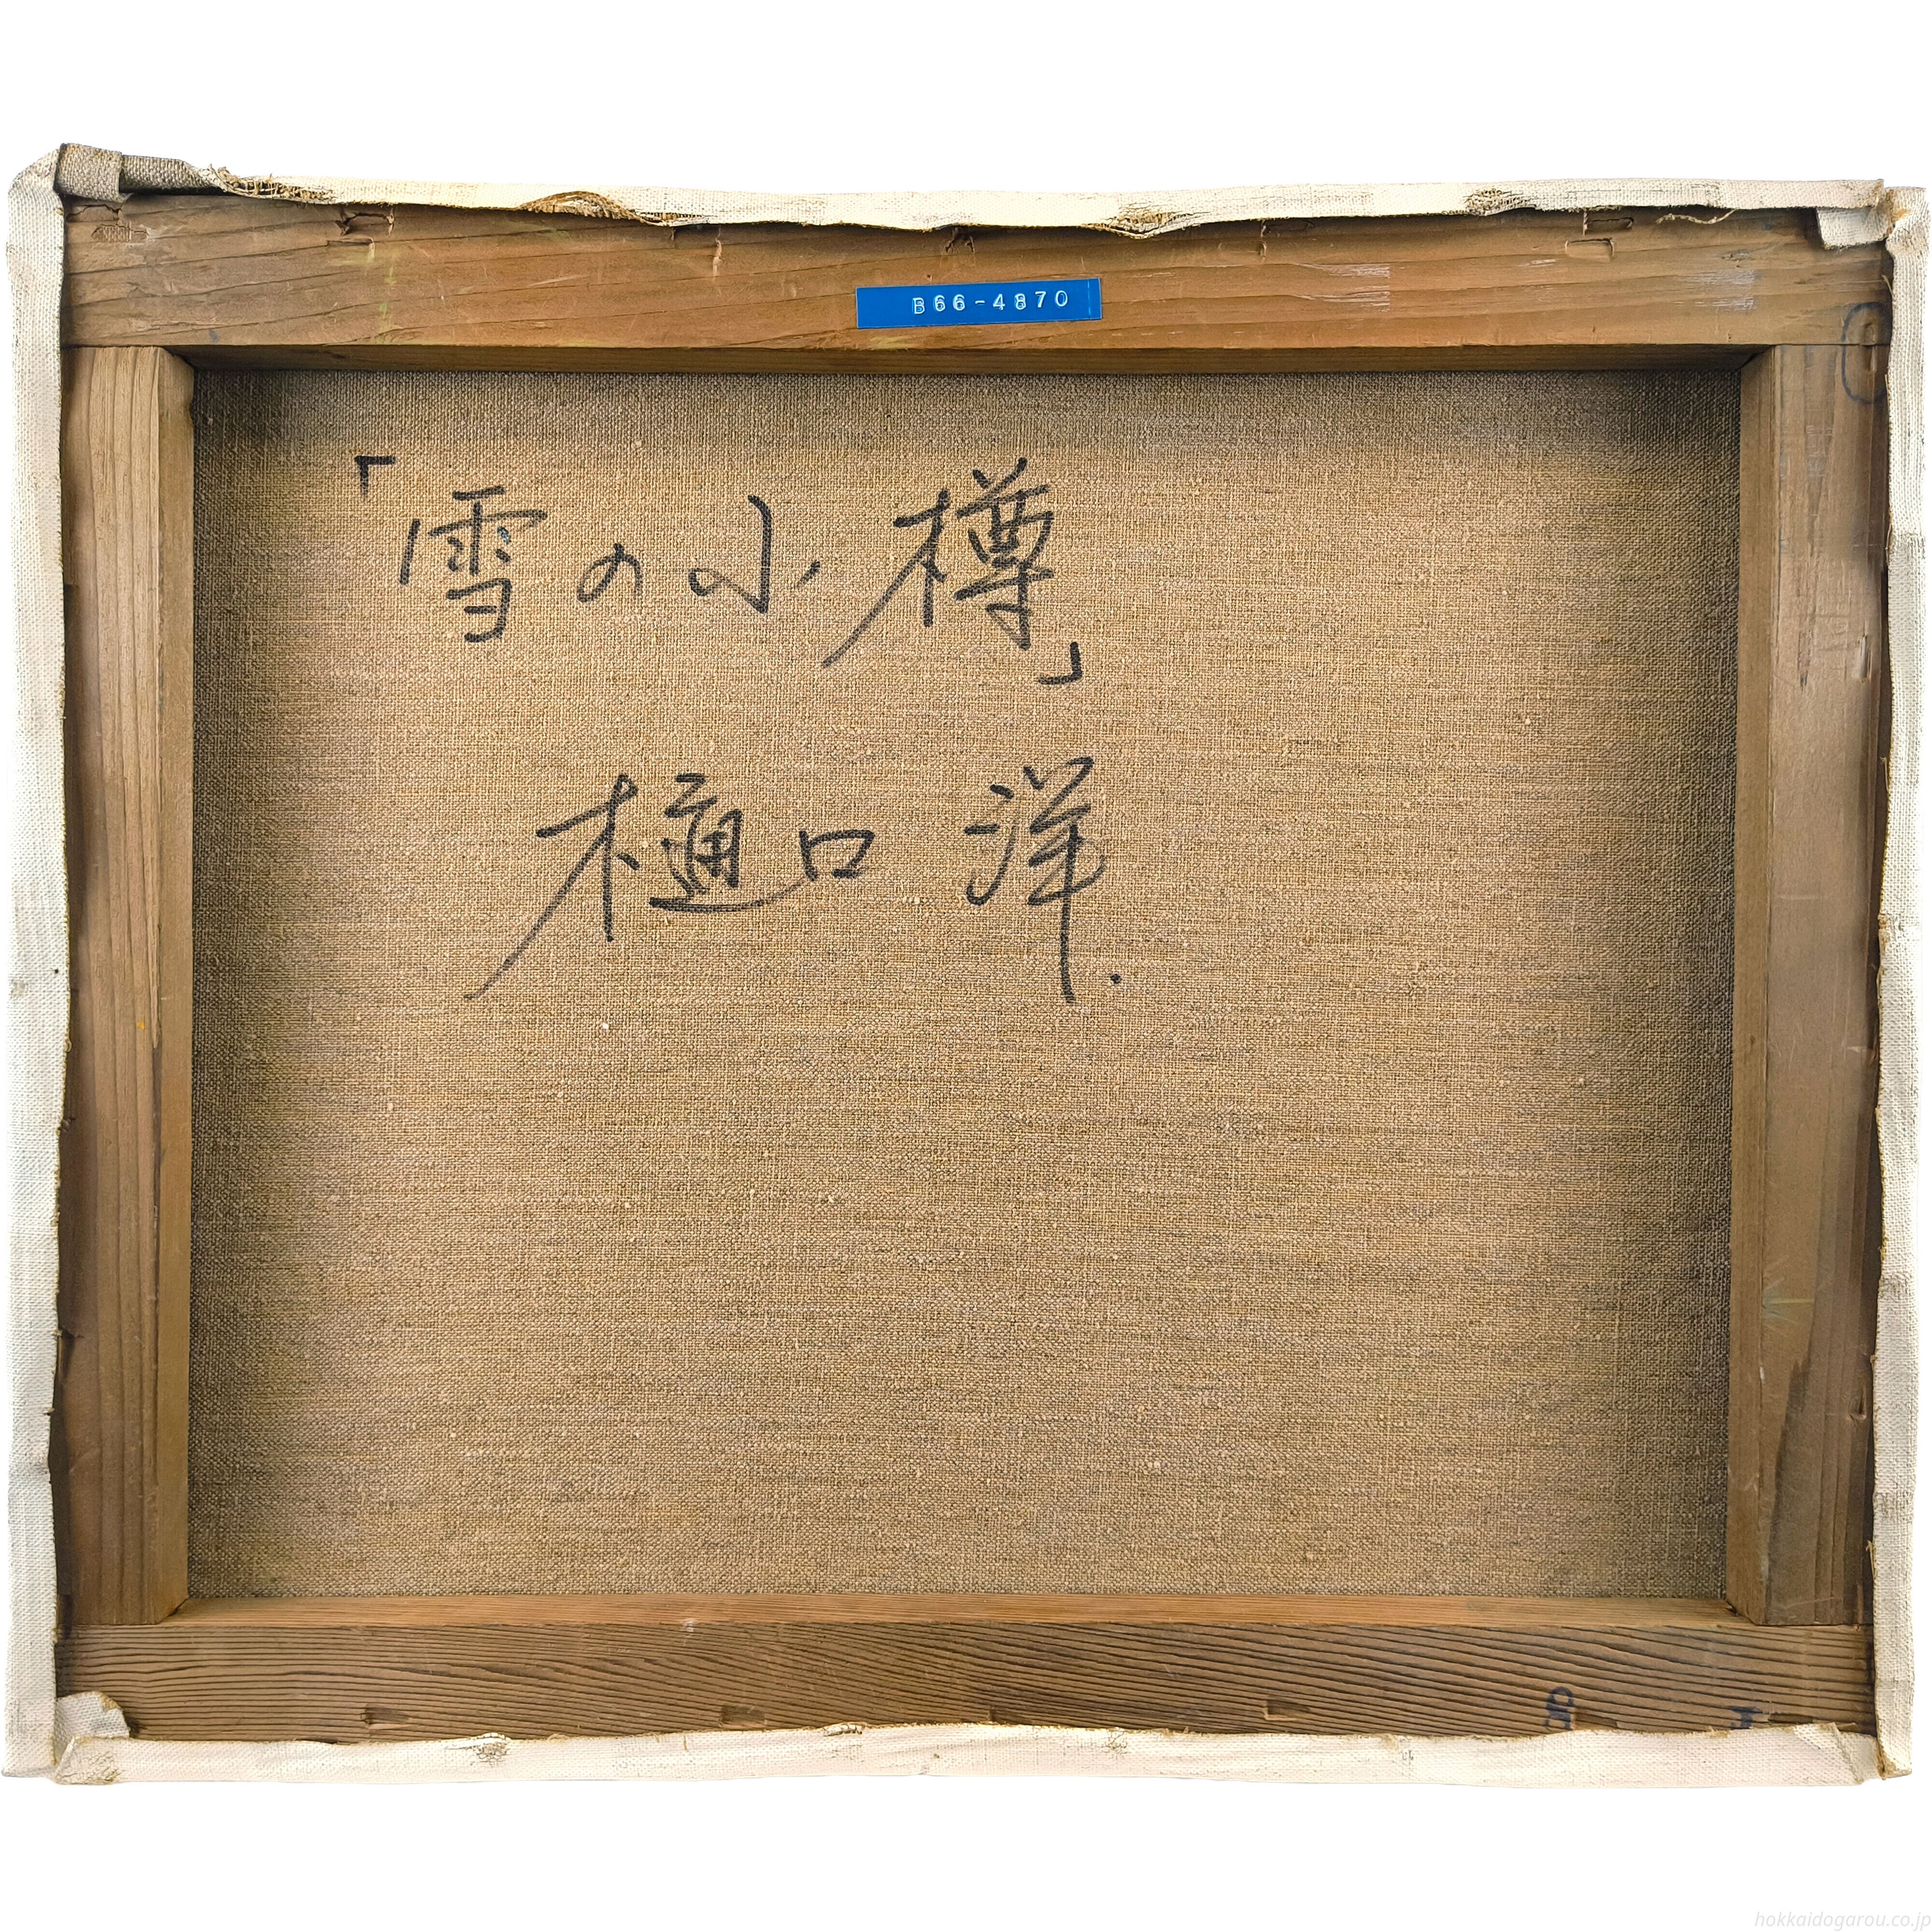 B66-4870
「雪の小樽」
樋口 洋.
8
hokkaidogarou.co.jp